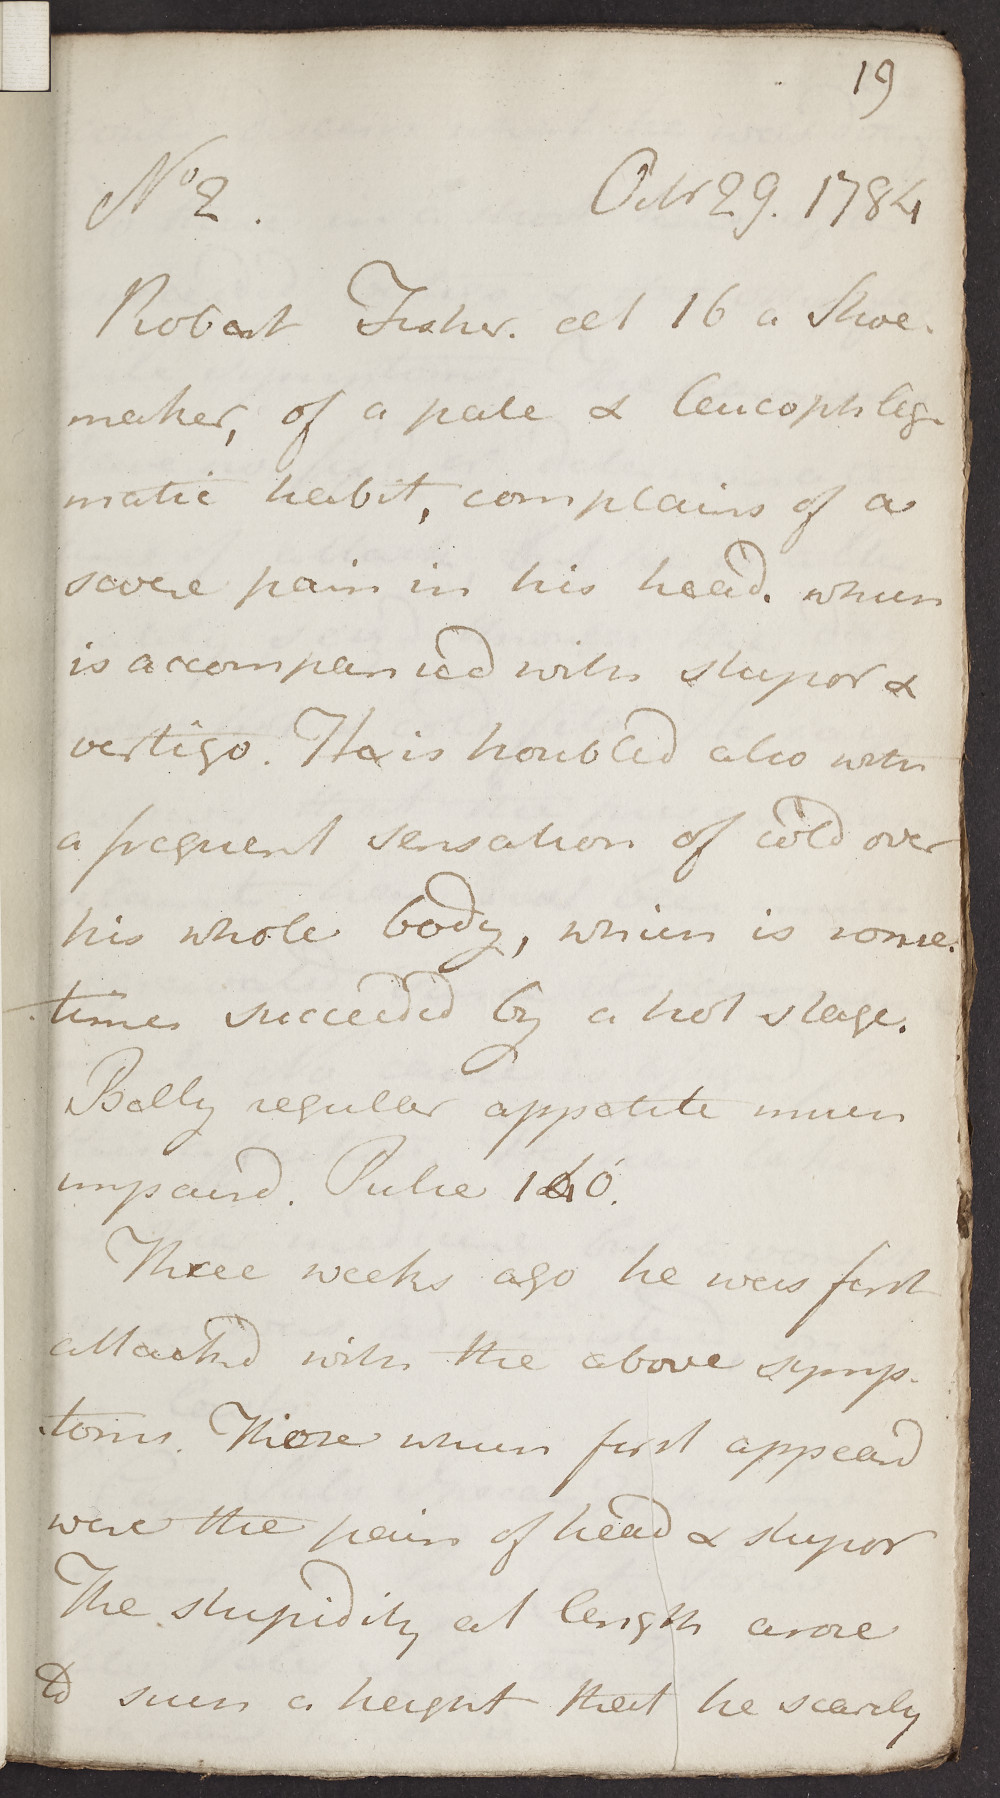 19
No 2. Octr 29. 1784
Robert Fisher. aet 16 a Shoe-
maker, of a pale & leucophleg-
matic habit, complains of a
severe pain in his head. which
is accompanied with stupor &
vertigo. He is troubled also with
a frequent sensation of cold over
his whole body, which is some-
times succeeded by a hot stage.
Belly regular appetite much
impaird. Pulse 140.
Three weeks ago he was first
attackd with the above symp-
toms. Those which first appeard
were the pain of head & stupor
The stupidity at length arose
to such a height that he scarcly